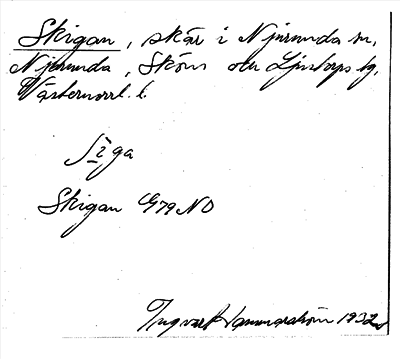 Skigan, skär i Njurunda sn,
Njurunda, Sköns och Ljustorps tg,
Västernorrl. l.
Siga
Skigan G79 NO
Ingvar Hammarström 1932